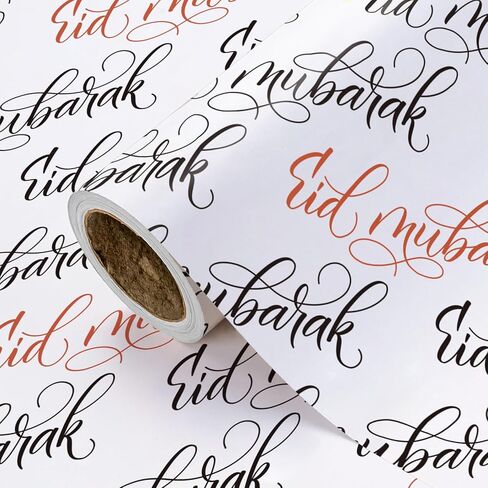 Eid mubarak
mubarak
mubarak
Eid barak
Eid mubarak
mubarak
Eid mubarak
Eid
Eid
mubarak
mubarak